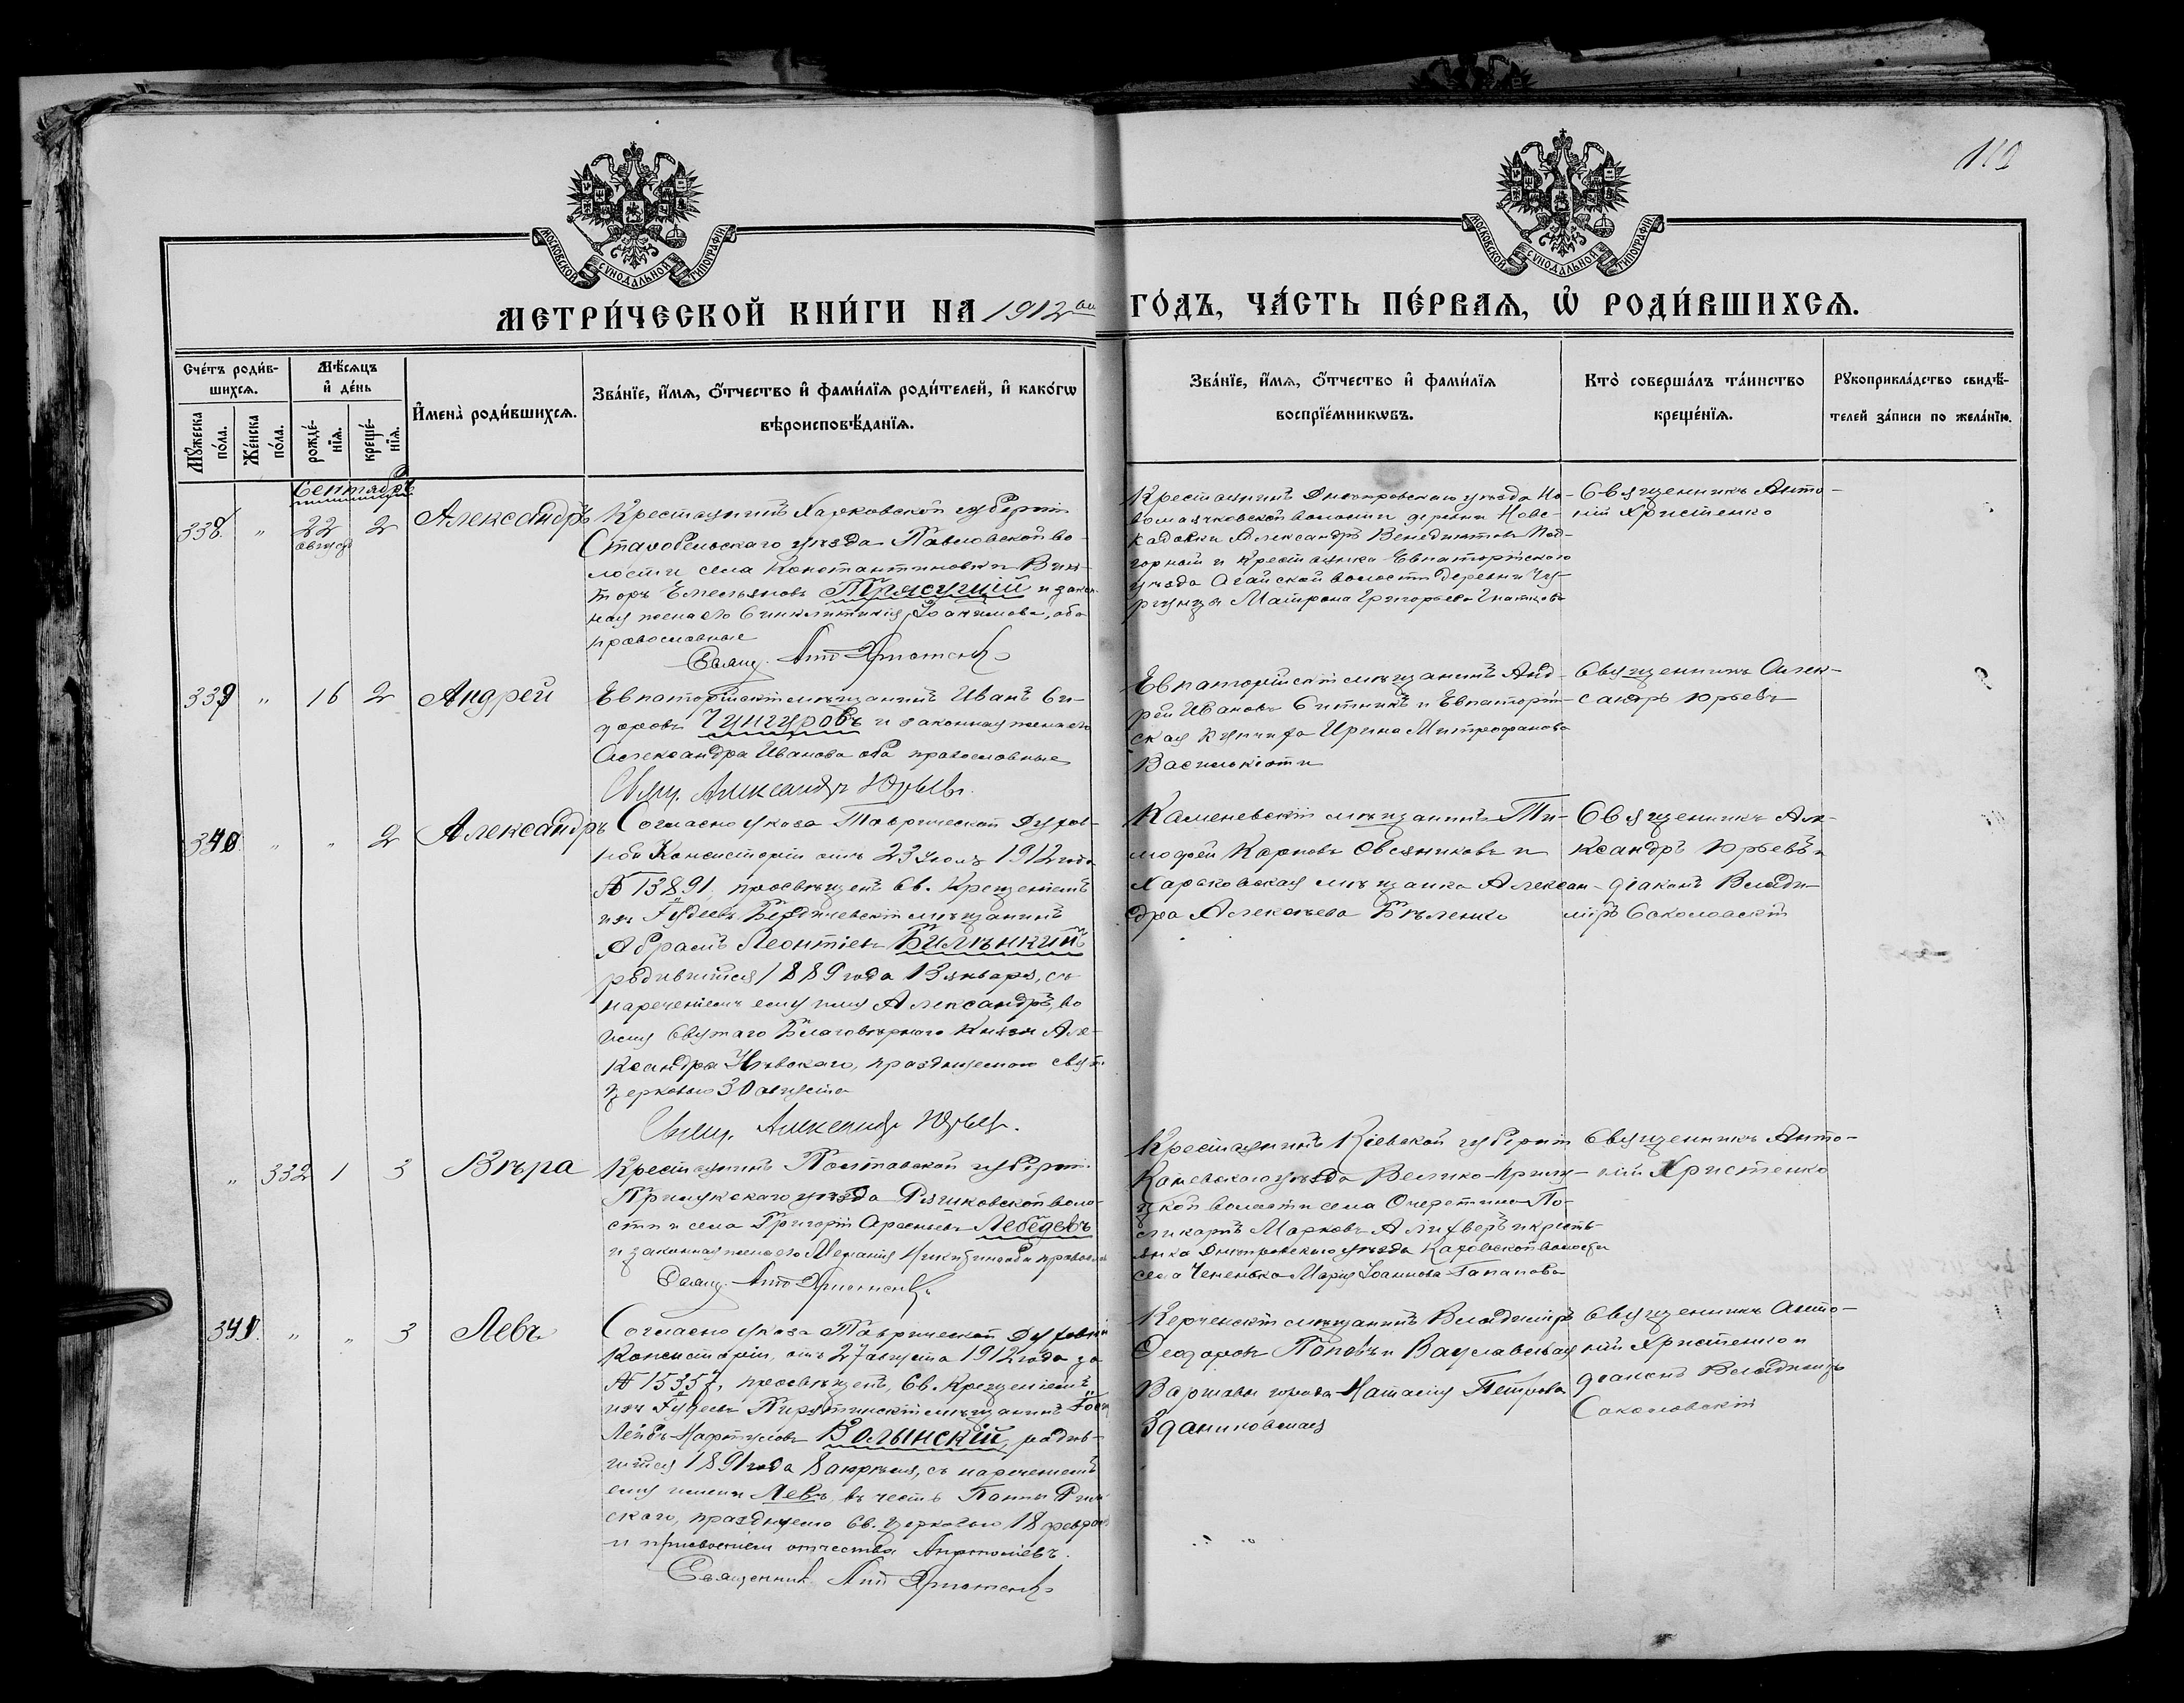 112
МОСКОВСКОЙ СѴНОДАЛЬНОЙ ТИПОГРАФІИ
МОСКОВСКОЙ СѴНОДАЛЬНОЙ ТИПОГРАФІИ
МЕТРИ́ЧЕСКОЙ КНИ́ГИ НА 1912 ый ГО́ДЪ, ЧА́СТЬ ПЕ́РВАѦ, Ѡ҆ РОДИ́ВШИХСѦ.
Сче́тъ роди́в-
шихсѧ.
Мꙋ́жеска
по́ла.
Же́нска
по́ла.
Мѣ́сѧцъ
и҆ де́нь
рожде́-
нїѧ.
креще́-
нїѧ.
И҆мена̀ роди́вшихсѧ.
Зва́нїе, и҆́мѧ, ѻ҆́тчество и҆ фами́лїѧ роди́телей, и҆ како́гѡ
вѣроисповѣ́данїѧ.
Зва́нїе, и҆́мѧ, ѻ҆́тчество и҆ фами́лїѧ
воспрїе́мникѡвъ.
Кто̀ соверша́лъ та́инство
креще́нїѧ.
Рꙋкоприкла́дство свидѣ́-
телей за́писи по жела́нїю.
Сентябрь
338. " 22 августа 2 Александръ
Крестьянинъ Харковской губерніи
Старобельскаго уѣзда Павловской во-
лости села Константиновки Вик-
торъ Емельяновъ Трясущій и закон-
ная жена его Синклитикія Іоакимова, оба
православные
Свящ. Ант Христенко
Крестьянинъ Днѣпровскаго уѣзда Но-
вомаячковской волости деревни Ново-
каховки Александръ Венедиктовъ Под-
горный и крестьянка Евпаторійскаго
уѣзда Агайской волости деревни
Матрона Григорьева
Священникъ Анто-
ній Христенко
339 " 16 2 Андрей
Евпаторійскій мѣщанинъ Иванъ Си-
доровъ Чунгуровъ и законная жена его
Александра Иванова оба православные
Свящ. Александръ Юрьевъ.
Евпаторійскій мѣщанинъ Анд-
рей Ивановъ Ситникъ и Евпаторій-
ская купчиха Ирина Митрофанова
Василькіоти
Священникъ Алек-
сандръ Юрьевъ
340. " " 2 Александръ
Согласно указа Таврической Духов-
ной Консисторіи отъ 23 іюля 1912 года
№ 13891, просвѣщенъ Св. Крещеніемъ
изъ Іудеевъ Бердичевскій мѣщанинъ
Абрамъ Леонтіевъ Билѣнкинъ
родившійся 1889 года 13 января, съ
нареченіемъ ему имя Александръ, во
имя Святаго Благовѣрнаго Князя Але-
ксандра Невскаго, празднуемаго свят.
Церковью 30 августа
Свящ. Александръ Юрьевъ.
Каменевскій мѣщанинъ Ти-
мофей Карповъ Овсяниковъ и
Харьковская мѣщанка Алексан-
дра Алексѣева Бѣленко
Священникъ Але-
ксандръ Юрьевъ и
діаконъ Влади-
міръ Соколовскій
" 332 1 3 Вѣра
Крестьянинъ Полтавской губерніи
Прилукскаго уѣзда Рудиковской воло-
сти и села Григорій Арсеньевъ Лебедевъ
и законная жена его Меланія Никитина оба правосл
Свящ. Ант Христенко
Крестьянинъ Кіевской губерніи
Каневскаго уѣзда Велико-Прилу-
цкой волости села Очеретина По-
ликарпъ Марковъ и кресть-
янка Днѣпровскаго уѣзда Каховской волости
села Марія Іоаннова Гапанова
Священникъ Анто-
ній Христенко
341. " " 3 Левъ
Согласно указа Таврической Духовной
Консисторіи, отъ 27 августа 1912 года за
№ 15357, просвѣщенъ, Св. Крещеніемъ
изъ Іудеевъ Пирятинскій мѣщанинъ
Лейбъ Нафтуловъ Волынскій, родив-
шійся 1891 года 8 апрѣля, съ нареченіемъ
ему имени Левъ, въ честь Папы Рим-
скаго, празднуемо Св. Церковью 18 феврал
и присвоеніем отчества Анатоліевъ.
Священник Ант Христенко
Керченскій мѣщанинъ Владиміръ
Ѳеодоровъ Поповъ и
Варшавы города Наталія Петрова
Здановская
Священникъ Анто-
ній Христенко и
діаконъ Владиміръ
Соколовскій